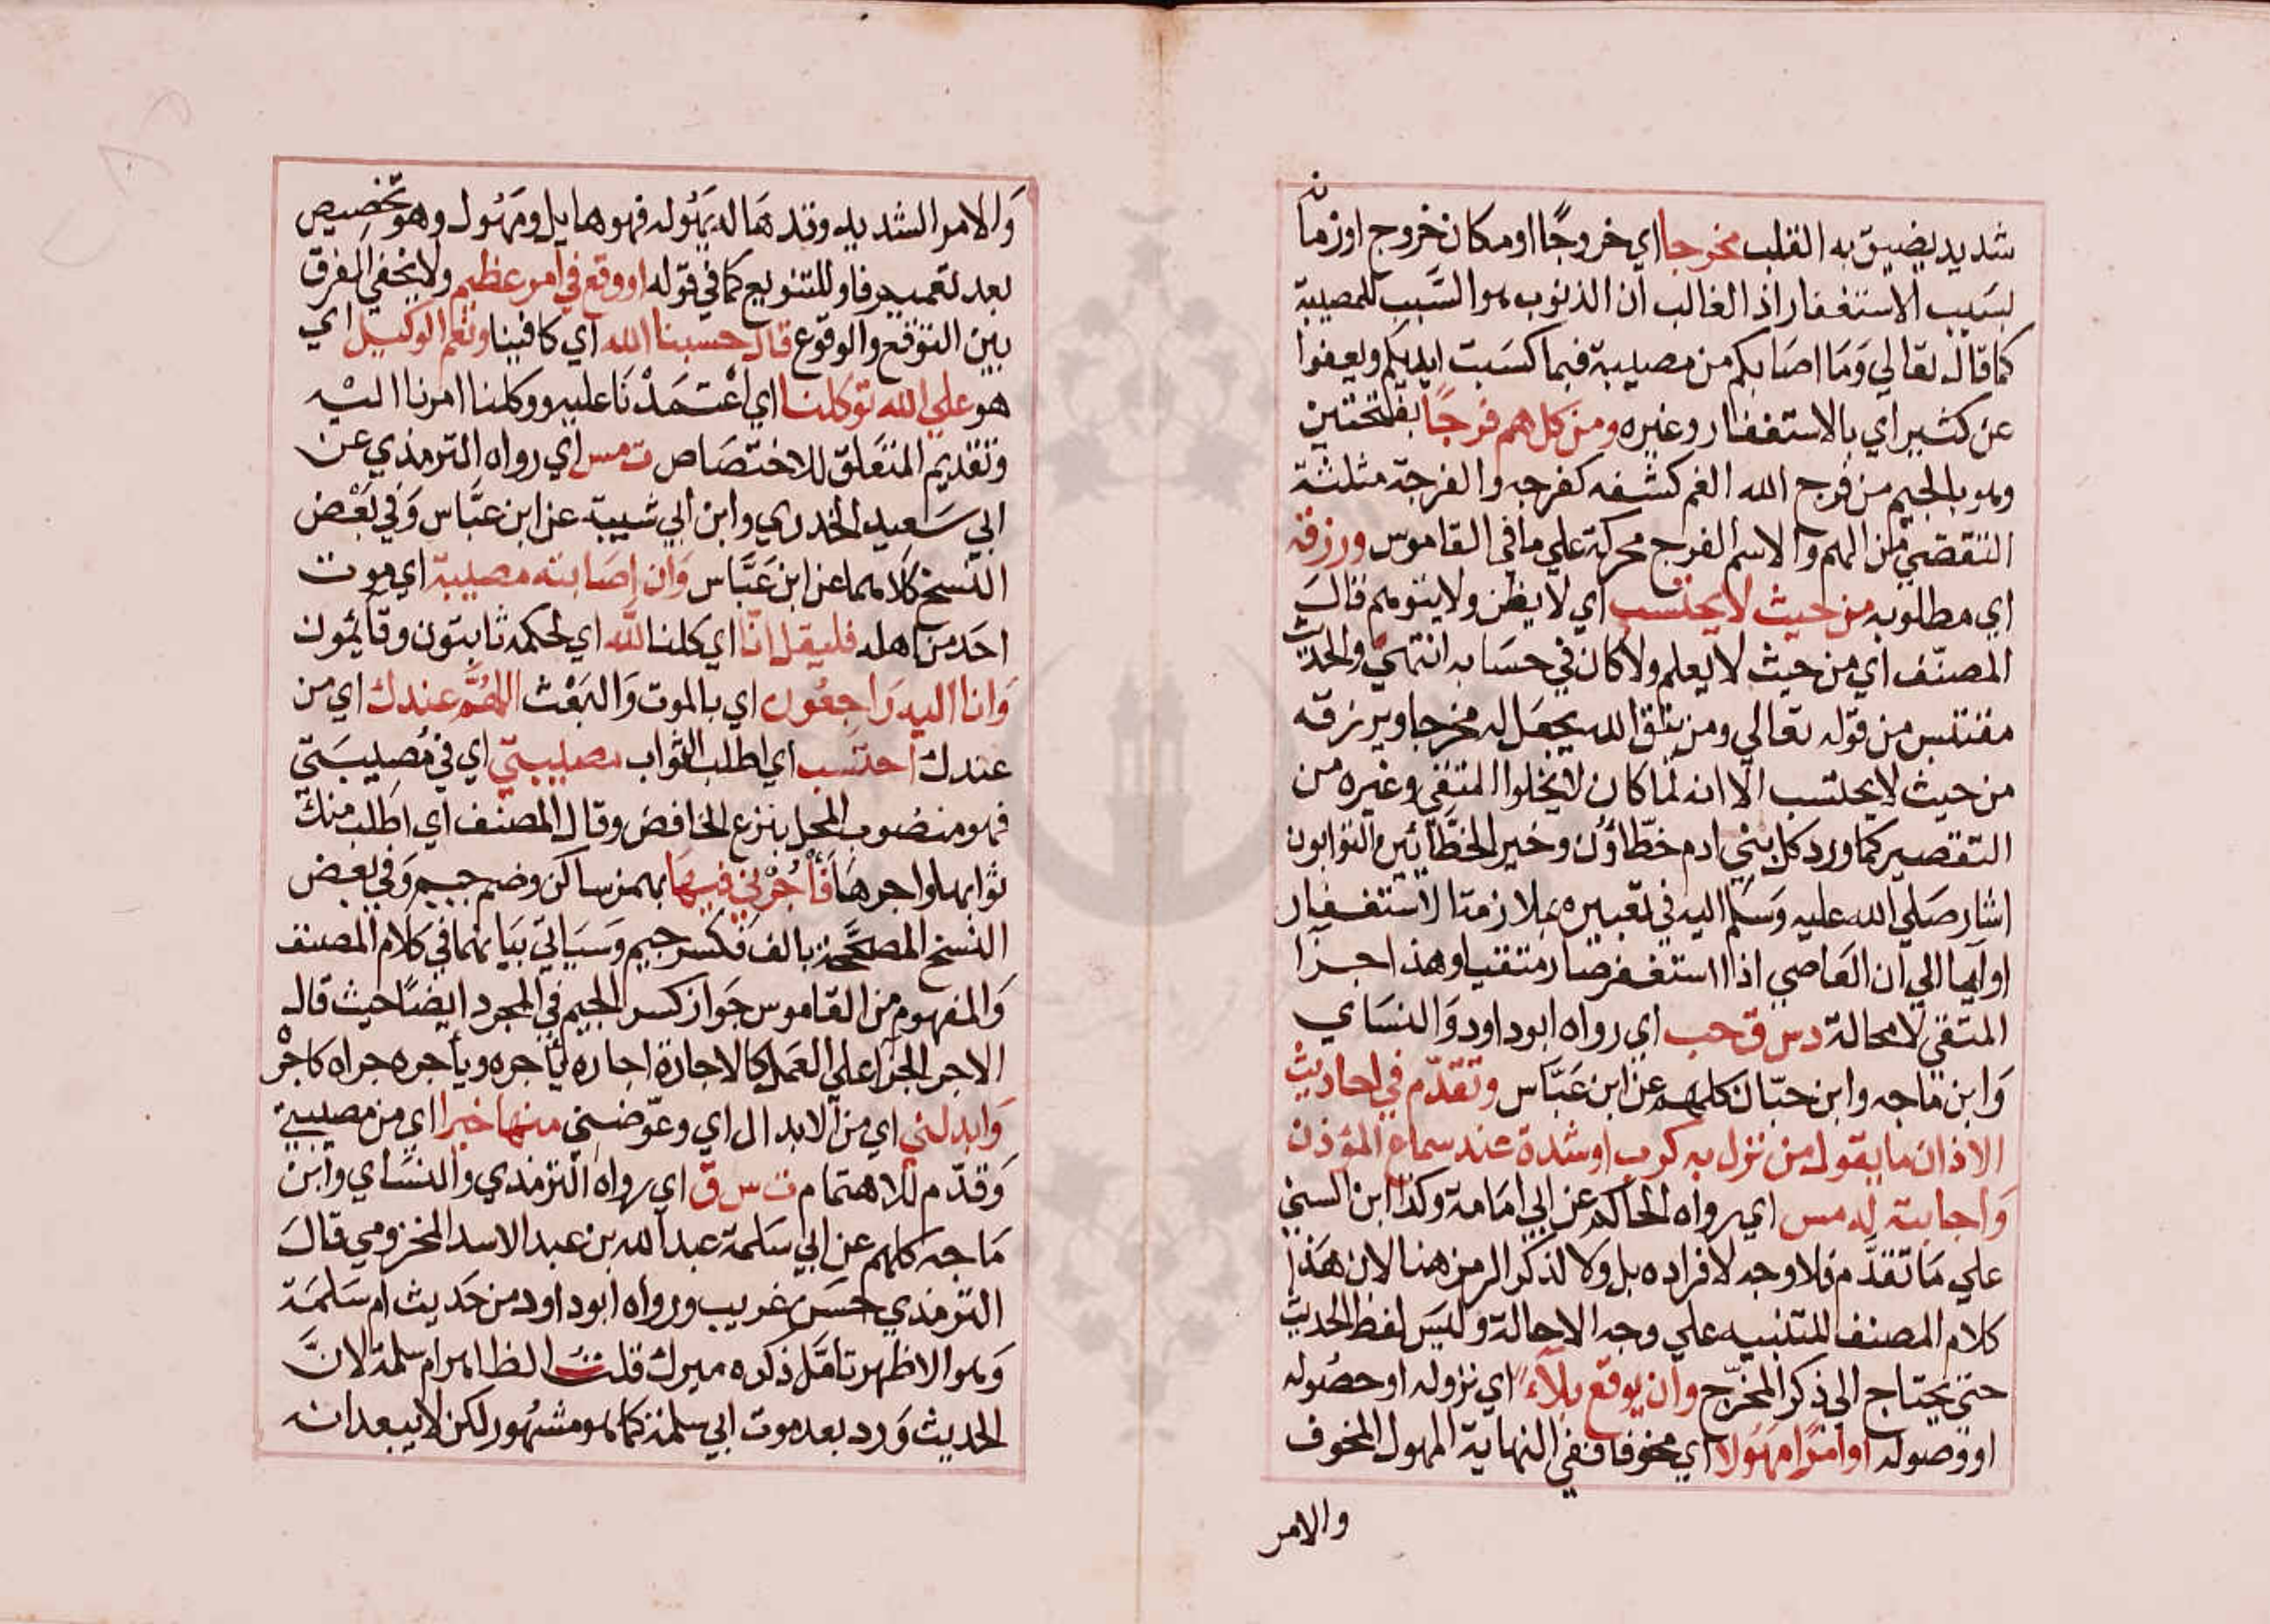 شديد يضيق به القلب مخرجا اي خروجًا او مكان خروج او زمانه
بسبب الاستغفار اذ الغالب ان الذنوب هو السَّبب للمصيبة
كما قال تعالي وَمَا اصَابكم من مصيبة فبما كسَبت ايديكم ويعفوا
عن كثير اي بالاستغفار وغيره ومن كل هم فرجًا بفتحتين
وهو بالجيم من فرج الله الغم كشفه كفرجه والفرجة مثلثة
التقصي من الهم والاسم الفرج محركة علي ما في القاموس ورزقه
اي مطلوبه من حيث لا يحتسب اي لا يظن ولا يتوهم قالَ
المصنّف اي من حيث لا يعلم ولا كان في حسَابه انتهيٰ والحديث
مقتبس من قوله تعالي ومن يتق الله يجعَل له مخرجا ويرزقه
من حيث لا يحتسب الا انه لما كان لا يخلوا المتقي وغيره من
التقصير كما ورد كل بني ادم خطّاؤن وخير الخطَّائين التوابون
اشار صَلي الله عليه وَسَلم اليه في تعبيره بملازمة الاستغفار
او ايما الي ان العَاصي اذا استغفر صار متقيا وهذا جزا
المتقي لا محالة دس ق حب اي رواه ابو داود وَالنسَاي
وَابن ماجه وابن حبّان كلهم عن ابن عَبَّاس وتقدّم في احاديث
الاذان ما يقول من نزل به كرب او شدة عند سماع المؤذن
وَاجابته له مس اي رواه الحاكم عن ابي امَامة وكذا ابن السني
علي مَا تقدَّم فلا وجه لافراده بل وَلا لذكر الرمز هنا لان هَذا
كلام المصنف للتنبيه علي وجه الاحالة وليسَ لفظ الحديث
حتي يحتاج الي ذكر المخرّج وان يوقع بلاَء اي نزوله او حصُوله
او وصوله او امرًا مهَولا اي مخوفا ففي النهاية المهول المخوف
والامر
وَالامر الشديد وقد هَاله يهُوله فهو هايل ومهُول وهو تخصيص
بعد تعميم فاو للتنويع كما في قوله او وقع في امر عظيم ولا يخفي الفرق
بين التوقع والوقوع قال حسبنا الله اي كافينا ونعم الوكيل اي
هو علي الله توكلنا اي اعْتَمَدْنَا عليه ووكلنا امرنا اليْه
وتقديم المتعَلق للاختصَاص ت مس اي رواه الترمذي عن
ابي سَعيد الخدري وابن ابي شيبة عن ابن عبَّاس وَفي بَعْض
النسخ كلاهما عن ابن عَبَّاس وَان اصَابته مصيبة اي موت
احَد من اهله فليقل انّا اي كلنا لله اي لحكمه ثابتون وقائمون
وَانا اليه رَاجعُون اي بالموت وَالبَعْث اللهُمَّ عندك اي من
عندك احتسب اي اطلب الثواب مصيبتي اي في مُصيبَتي
فهو منصُوب المحل بنزع الخافض وقال المصنف اي اطلب منك
ثوابها واجرهَا فَأْجُرْني فيهَا بهمز ساكن وضم جيم وَفي بعض
النسخ المصحَّحة بالف فكسر جيم وَسَياتي بيَانهما في كلام المصنف
وَالمفهوم من القاموس جوَاز كسر الجيم في المجرد ايضًا حيث قال
الاجر الجزَا علي العَمل كالاجازة اجاره يأجره ويأجره جزاه كاجْر
وَابدلني اي من الابدال اي وعوّضني منها خيرا اي من مصيبتي
وَقدّم للاهتمام ت س ق اي رواه الترمذي والنسَاي وابن
مَاجه كلهم عن ابي سَلمة عبد الله بن عبد الاسد المخزومي قالَ
الترمذي حسَن غريب ورواه ابو داود من حَديث ام سَلمَة
وَهو الاظهر تامَل ذكره ميرك قلت الظاهر ام سلمة لانَّ
الحديث وَرد بعد موت ابي سلمة كما هو مشهُور لكن لا يبعد انه